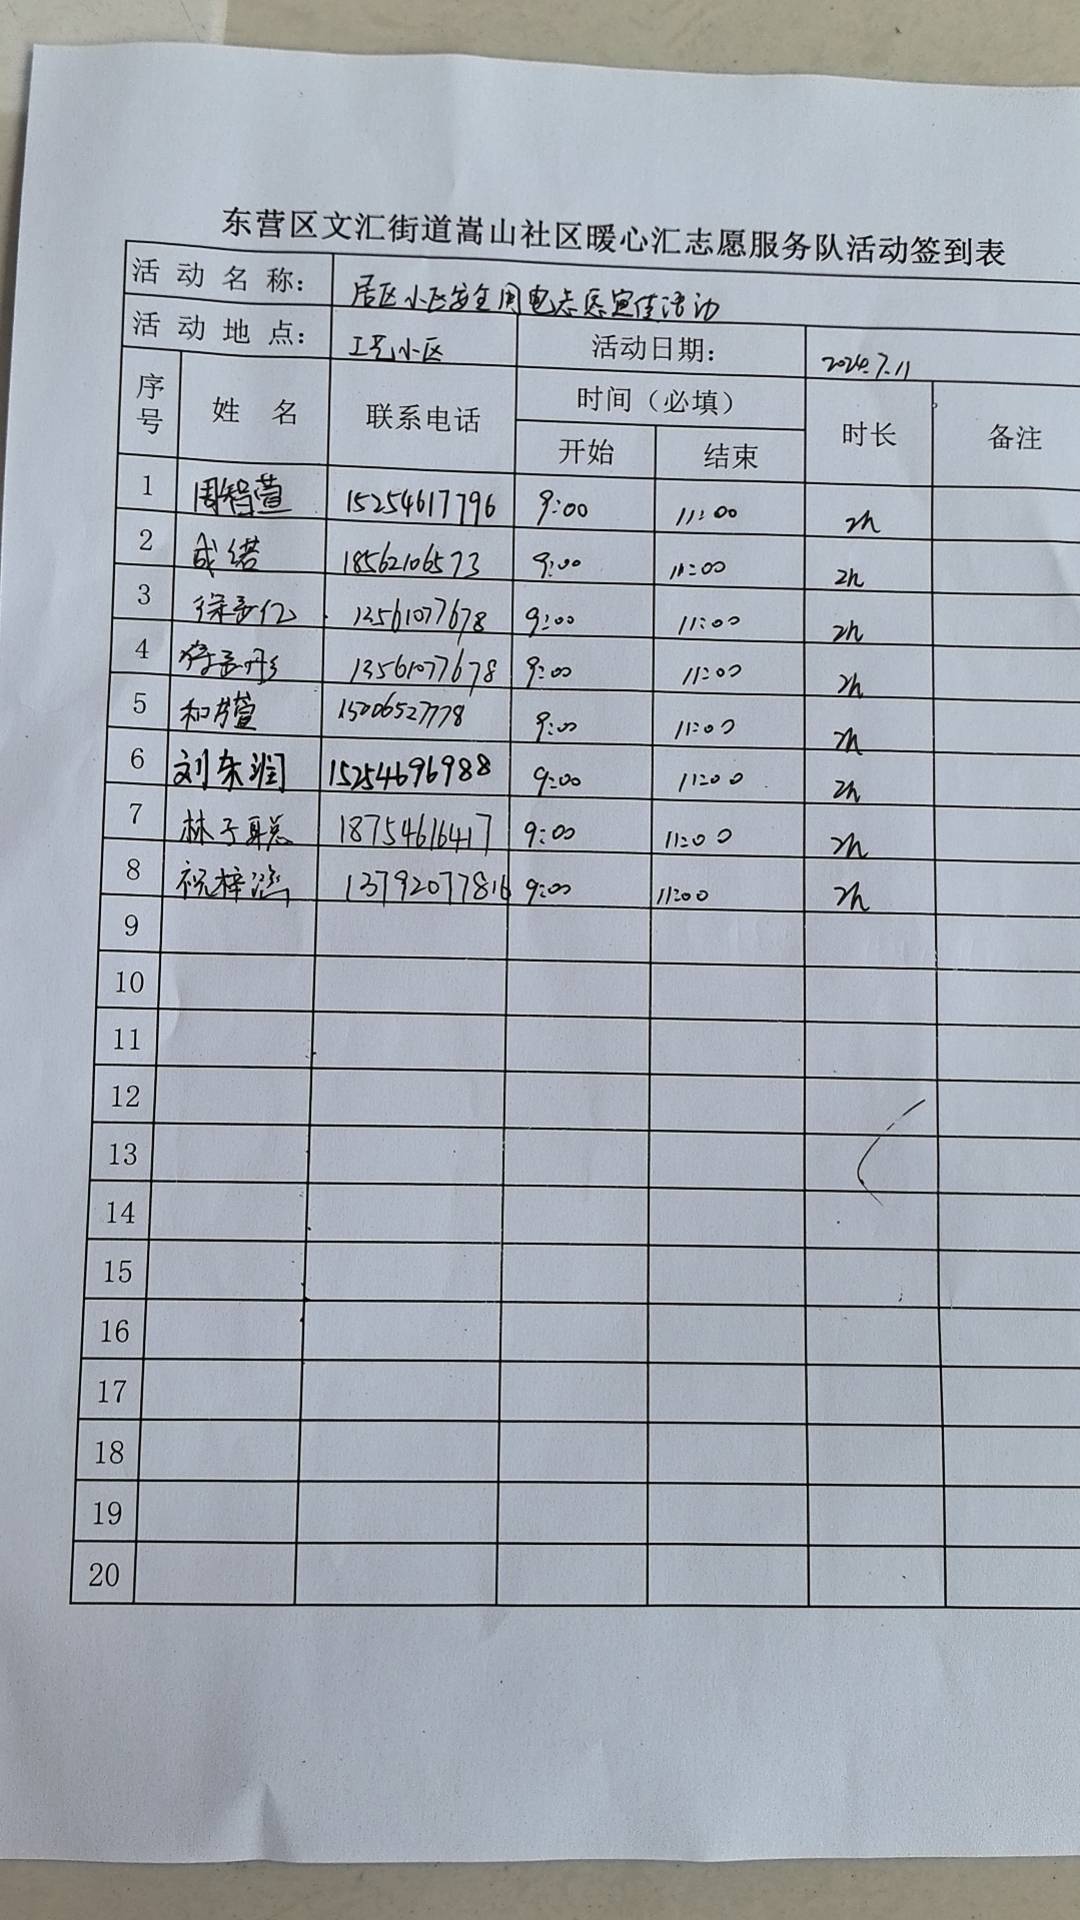 东营区文汇街道嵩山社区暖心汇志愿服务队活动签到表
活动名称： 居区小区安全用电志愿宣传活动
活动地点： 工号小区 活动日期： 2024.7.11
序号 姓名 联系电话 时间（必填） 时长 备注
开始 结束
1 周智萱 15254617796 9:00 11:00 2h
2 成诺 18562106573 9:00 11:00 2h
3 徐孟亿 13561077678 9:00 11:00 2h
4 徐孟彤 13561077678 9:00 11:00 2h
5 和梦萱 15006527778 9:00 11:00 2h
6 刘东润 15254696988 9:00 11:00 2h
7 林子聪 18754616417 9:00 11:00 2h
8 祝梓涵 13792077816 9:00 11:00 2h
9
10
11
12
13
14
15
16
17
18
19
20